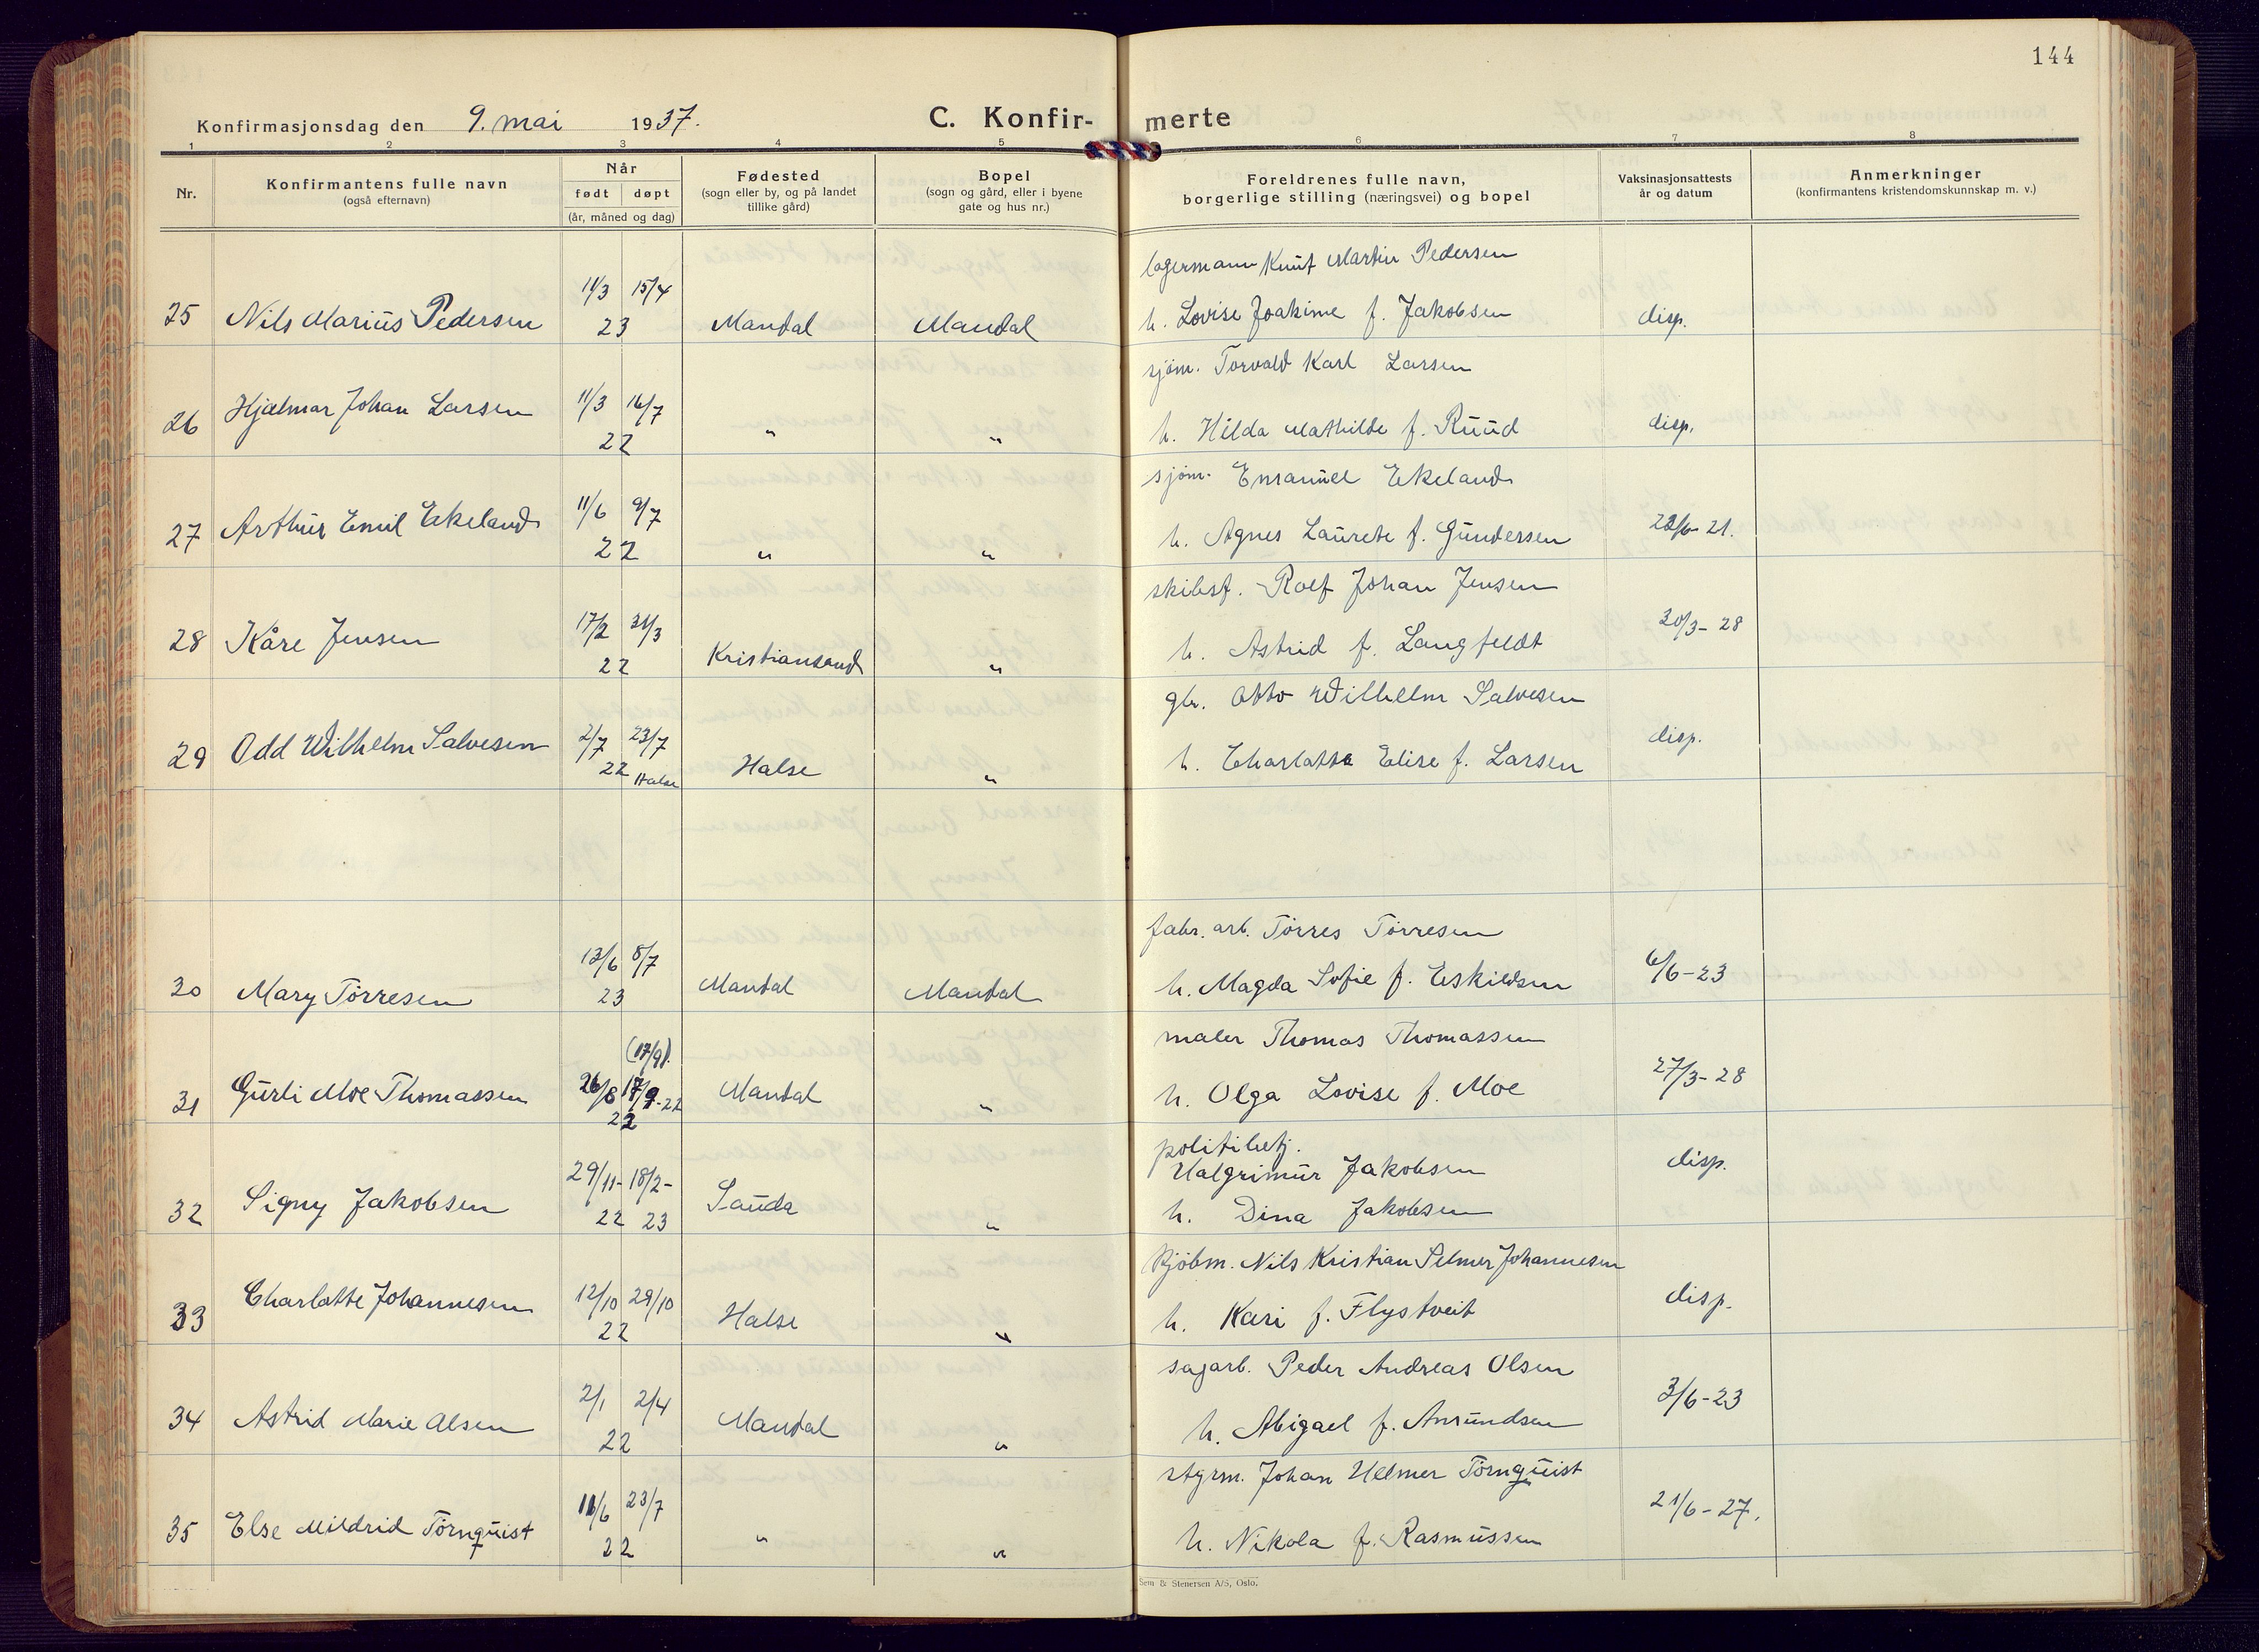 144
Konfirmasjonsdag den 9. mai 1937.
C. Konfir- merte
1 2 3 4 5 6 7 8
Nr.
Konfirmantens fulle navn
(også efternavn)
Når
født døpt
(år, måned og dag)
Fødested
(sogn eller by, og på landet
tillike gård)
Bopel
(sogn og gård, eller i byene
gate og hus nr.)
Foreldrenes fulle navn,
borgerlige stilling (næringsvei) og bopel
Vaksinasjonsattests
år og datum
Anmerkninger
(konfirmantens kristendomskunnskap m. v.)
lagermann Knut Martin Pedersen
11/3 15/4
25 Nils Marius Pedersen 23 Mandal Mandal h. Lovise Joakime f. Jakobsen disp.
sjøm. Torvald Karl Larsen
11/3 16/7
26 Hjalmar Johan Larsen 22 " " h. Hilda Mathilde f. Ruud disp.
sjøm. Emanuel Ekeland
11/6 9/7
27 Arthur Emil Ekeland 22 " " h. Agnes Laurete f. Gundersen 22/6-21.
skibsf. Rolf Johan Jensen
17/2 31/3
28 Kåre Jensen 22 Kristiansand " h. Astrid f. Langfeldt 20/3-28
gbr. Otto Wilhelm Salvesen
2/7 23/7
29 Odd Wilhelm Salvesen 22 Halse Halse " h. Charlotte Elise f. Larsen disp.
fabr. arb. Tørres Tørresen
13/6 8/7
30 Mary Tørresen 23 Mandal Mandal h. Magda Sofie f. Eskildsen 6/6-23
maler Thomas Thomassen
(17/9).
26/8 17/9-22
31 Gurli Moe Thomassen 22 Mandal " h. Olga Lovise f. Moe 27/3-28
politibetj.
Halgrimur Jakobsen
29/11- 18/2-
32 Signy Jakobsen 22 23 Sauda " h. Dina Jakobsen disp.
Kjøbm. Nils Kristian Selmer Johannesen
12/10 29/10
33 Charlotte Johannesen 22 Halse " h. Kari f. Flystveit disp.
sagarb. Peder Andreas Olsen
2/1 2/4
34 Astrid Marie Olsen 22 Mandal " h. Abigael f. Amundsen 3/6-23
styrm. Johan Helmer Törnquist
11/6 23/7
35 Else Mildrid Törnquist 22 " " h. Nikola f. Rasmussen 21/6-27.
Sem & Stenersen A/S, Oslo.